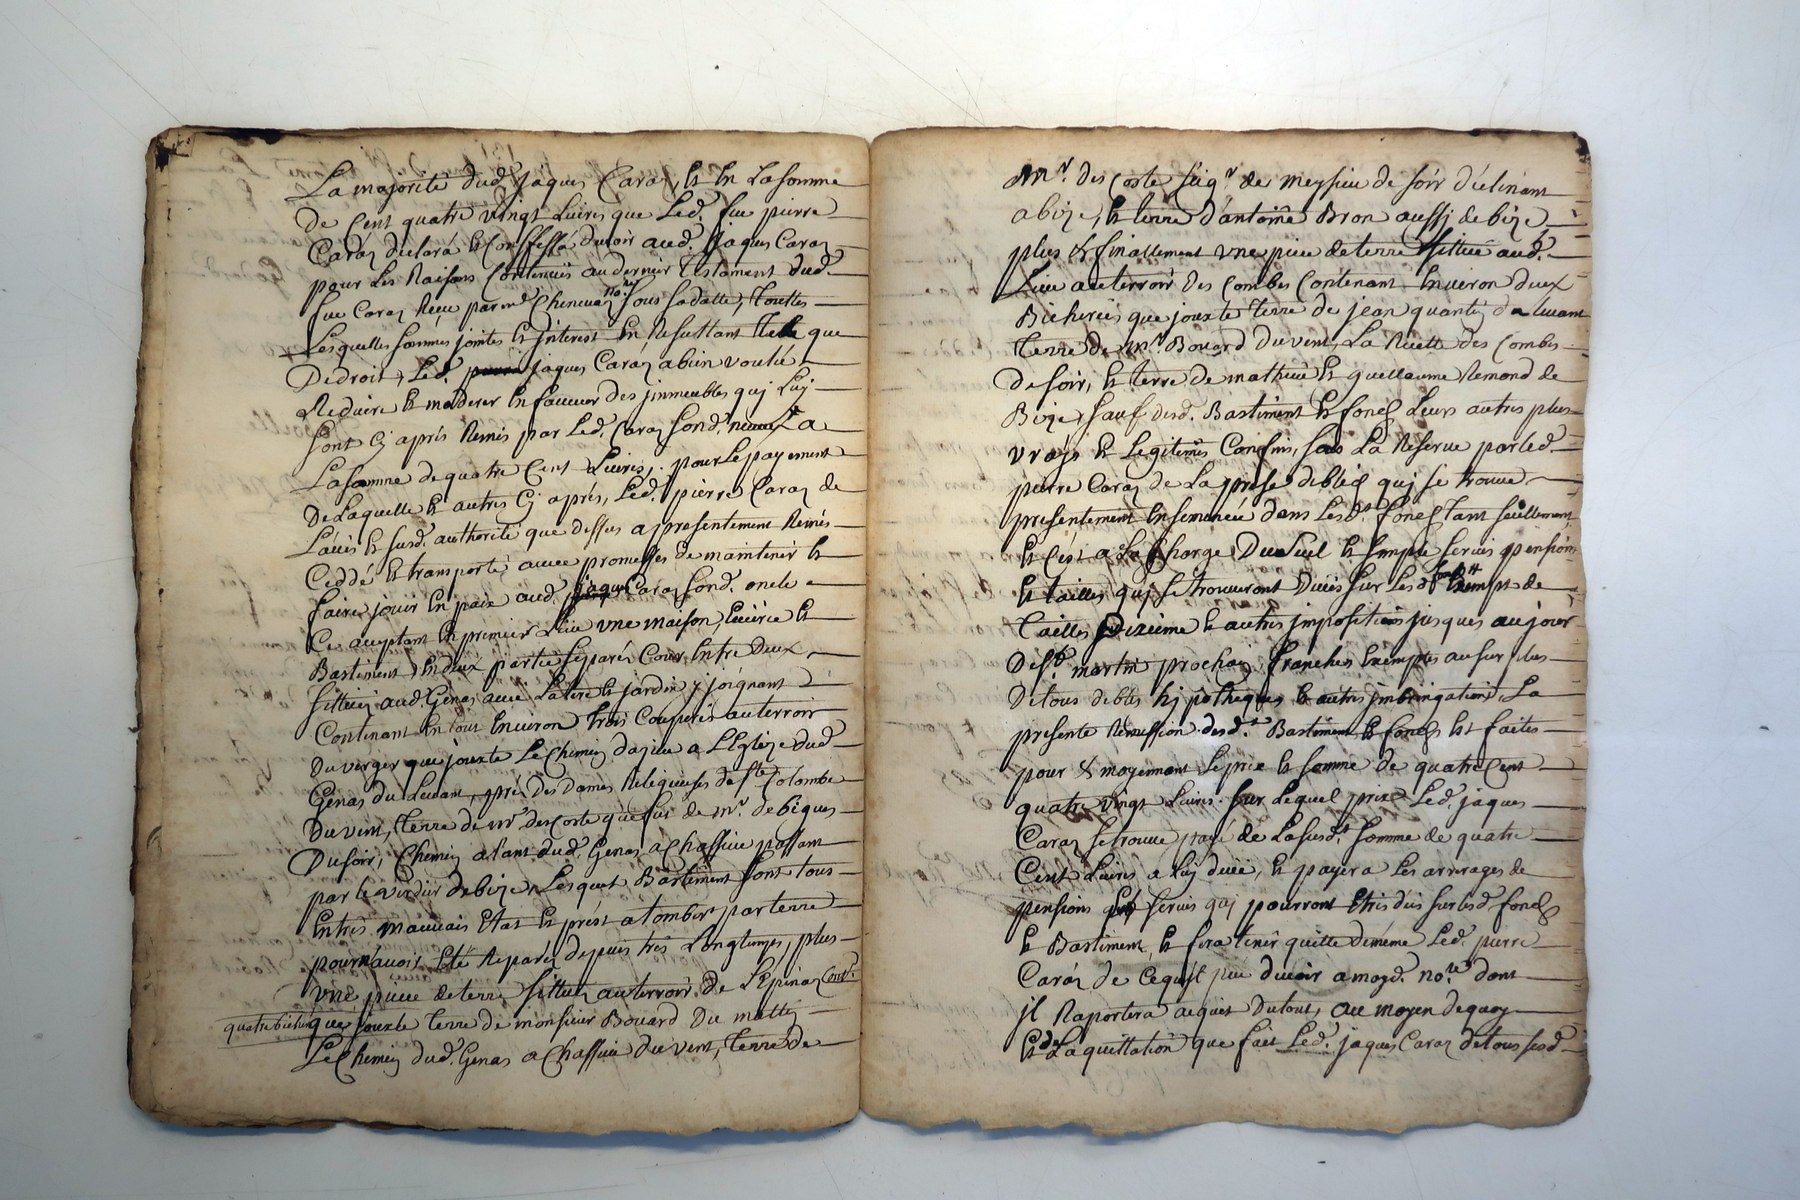 La majorité dud. jaques Caraz, Et En La somme
de Cent quatre vingt Liures que Led. feu pierre
Caraz declara Et Confessa duoir aud. jaques Caraz
pour Les Raisons Contenües au dernier Testament dud.
feu Caraz Reçu par me. Cheneuaz no.re sous sa datte, Touttes
Lesquelles sommes jointes Et jnterest En Resultant Telle que
De droit, Led. jaques Caraz a bien voulu
Reduire Et moderer En faueur des jmmeubles quj Luj
sont Cj aprés Remis par Led. Caraz sond. neueu A
La somme de quatre Cent Liures, pour Le payement
De Laquelle Et autres Cj aprés, Led. pierre Caraz de
L'auis Et susd. authorité que dessus a presentement Remis
Ceddé Et transporté auec promesses de maintenir Et
faire jouir En paix aud. jaques Caraz sond. oncle
Ce acceptant En premier Lieu vne maison, Et
Bastiment En deux partie separés Cour Entre deux
sittuez aud. Genas auec L'aire Et jardin y joignant
Contenant En tout Enuiron trois Couperés au terroir
Du verger que jouxte Le Chemin d'azieu a L'Eglize dud.
Genas du Leuant, pré des Dames Religieuses de Ste. Colombe
Du vent, Terre de mr. descoste que fut de mr. de bèques
Du soir, Chemin alant dud. Genas a Chassieu passant
par le verdier de bize, Lesquels Bastiment sont tous
En trés mauuais Etat Et prést a tomber par terre
pour n'auoir Eté Reparés depuis trés Longtemps, plus
vne piece de terre sittuez au terroir de L'Epinaz Cont.
quatre bicherées que jouxte Terre de monsieur Bouard Du mattin
Le Chemin dud. Genas a Chassieu du vent, Terre de
Mr. des Coste seigr. de meysieu de soir declinant
a bize, Et terre d'antoine Bron aussj de bize,
plus & finallement vne piece de terre sittuée aud.
Lieu au terroir des Combes Contenant Enuiron deux
Bicherées que jouxte Terre de jean quantin du leuant
Terre de Mr. Bouard du vent, La Ruette des Combes
de soir, Et terre de mathieu Et guellaume Remond de
Bize, sauf desd. Bastiment Et fonds Leurs autres plus
vrajs Et Legitimes Confins, sous La Reserue par Led.
pierre Caraz de La prise de bled quj se trouue
presentement Ensemencée dans Lesd. fonds Tant seullement,
Et C'est a La Charge Du seul Et simple seruis pension
Et tailles quj se trouueront Duëes sur Lesd. Exempt de
Tailles Dixieme & autres jmpositions jusques au jour
De St. martin prochain, franches Exemptes au sur plus
De tous debtes hypotheques & autres jmbringations, La
presente Remission desd. Bastiment Et fonds Est faites
pour & moyennant Le prix Et somme de quatre Cent
quatre vingt Liures. sur Lequel prix Led. jaques
Caraz se trouue payé de La susd. somme de quatre
Cent Liures a Luj duëe, Et payera Les arrerages de
pensions Et seruis quj pourront Etres dûs sur lesd. fonds
& Bastiment, Et fera tenir quitte de meme Led. pierre
Caraz de Ce qu'il peut deuoir a moyd. no.re dont
jl Raportera acquit Du tout, au moyen de quoy
Et de La quittation que fait Led. jaques Caraz de tous sesd.